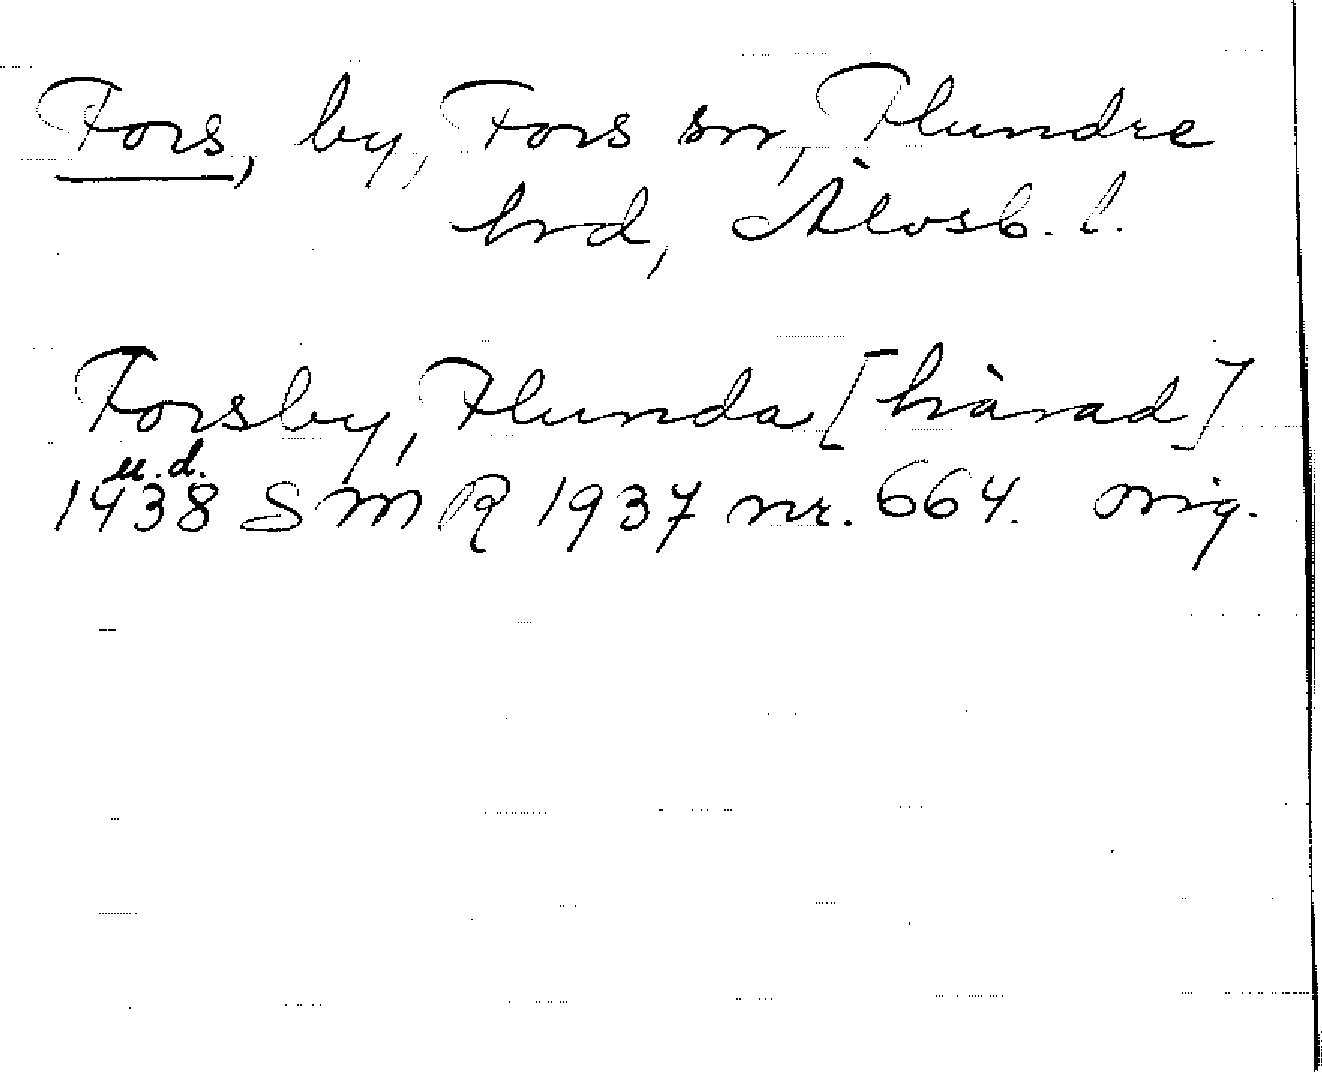 Fors, by, Fors sn, Flundre
hrd, Älvsb. l.
Forsby, Flunda [härad]
u.d.
1438 SMR 1937 nr. 664. orig.